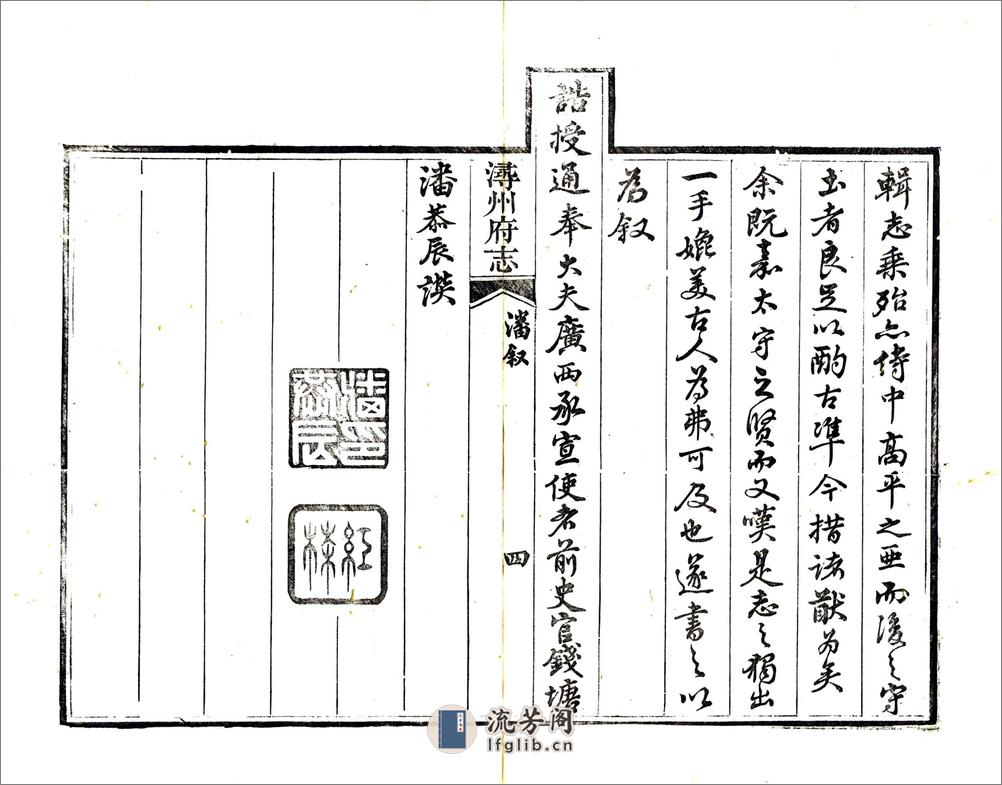 輯志乘殆亦侍中高平之亜而後之守
土者良足以酌古準今措諸猷為矣
余既嘉太守之賢而又嘆是志之獨出
一手媲美古人為弗可及也遂書之以
為叙
誥授通奉大夫廣西承宣使者前史官錢塘
潯州府志
潘叙
四
潘恭辰譔
潘印恭辰
紅茶
流芳阁
lfglib.cn